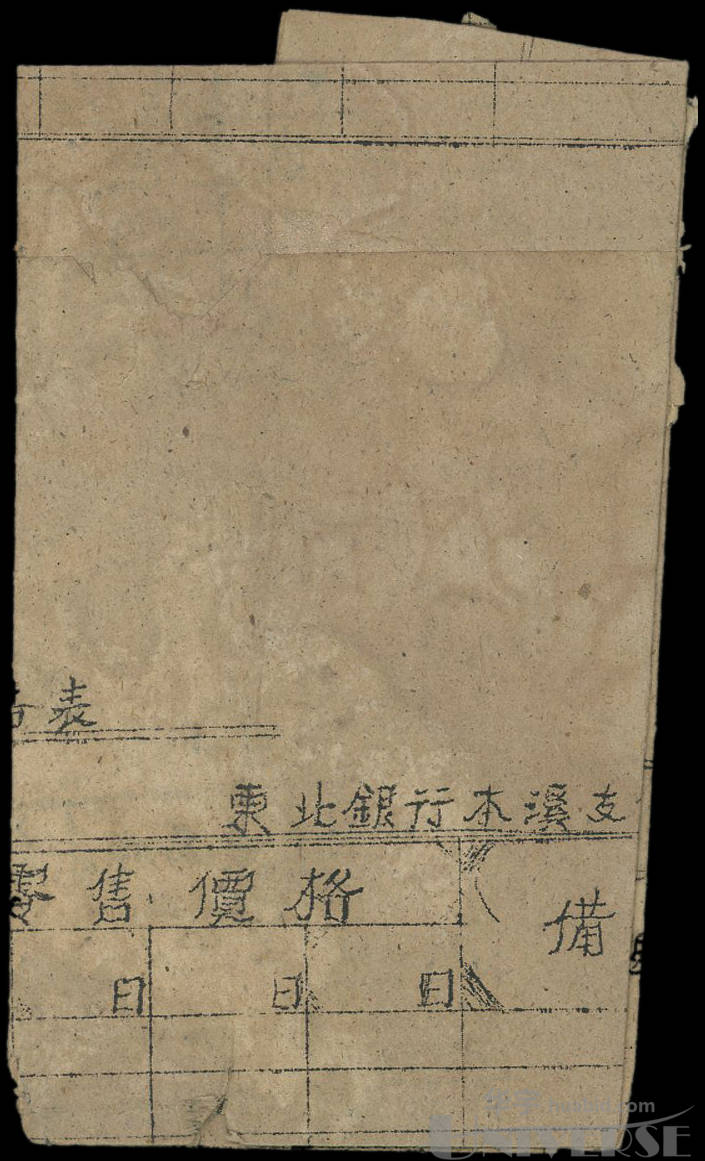 表
東北銀行本溪支
零售價格
備
日 日 日
UNIVERSE